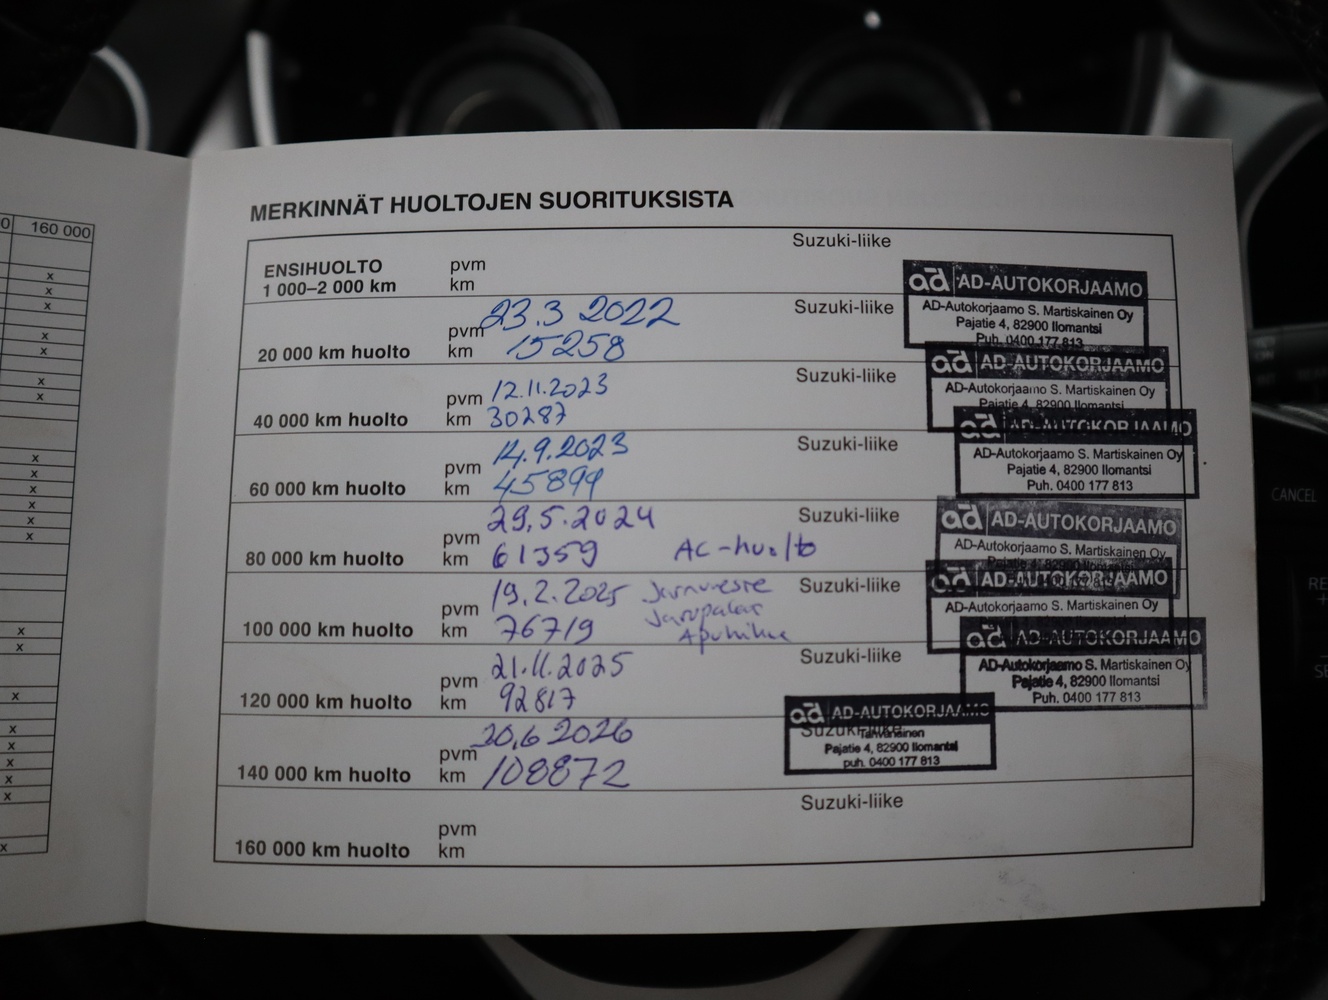 0 160 000
MERKINNÄT HUOLTOJEN SUORITUKSISTA
Suzuki-liike
ENSIHUOLTO pvm
1 000–2 000 km km
ad AD-AUTOKORJAAMO
AD-Autokorjaamo S. Martiskainen Oy
Pajatie 4, 82900 Ilomantsi
Puh. 0400 177 813
Suzuki-liike
pvm 23.3 2022
20 000 km huolto km 15258
ad AD-AUTOKORJAAMO
AD-Autokorjaamo S. Martiskainen Oy
Pajatie 4, 82900 Ilomantsi
Suzuki-liike
pvm 12.11.2023
40 000 km huolto km 30287
ad AD-AUTOKORJAAMO
AD-Autokorjaamo S. Martiskainen Oy
Pajatie 4, 82900 Ilomantsi
Puh. 0400 177 813
Suzuki-liike
pvm 14.9.2023
60 000 km huolto km 45899
ad AD-AUTOKORJAAMO
AD-Autokorjaamo S. Martiskainen Oy
Pajatie 4, 82900 Ilomantsi
Suzuki-liike
pvm 29.5.2024
80 000 km huolto km 61359 AC-huolto
ad AD-AUTOKORJAAMO
AD-Autokorjaamo S. Martiskainen Oy
Suzuki-liike
pvm 19.2.2025 Jarruneste
Jarrupalat
100 000 km huolto km 76719 Apuhihna
ad AD-AUTOKORJAAMO
AD-Autokorjaamo S. Martiskainen Oy
Pajatie 4, 82900 Ilomantsi
Puh. 0400 177 813
Suzuki-liike
pvm 21.11.2025
120 000 km huolto km 92817
ad AD-AUTOKORJAAMO
Suzuki-liike
Tahvanainen
Pajatie 4, 82900 Ilomantsi
puh. 0400 177 813
pvm 20.6 2026
140 000 km huolto km 108872
Suzuki-liike
pvm
160 000 km huolto km
CANCEL